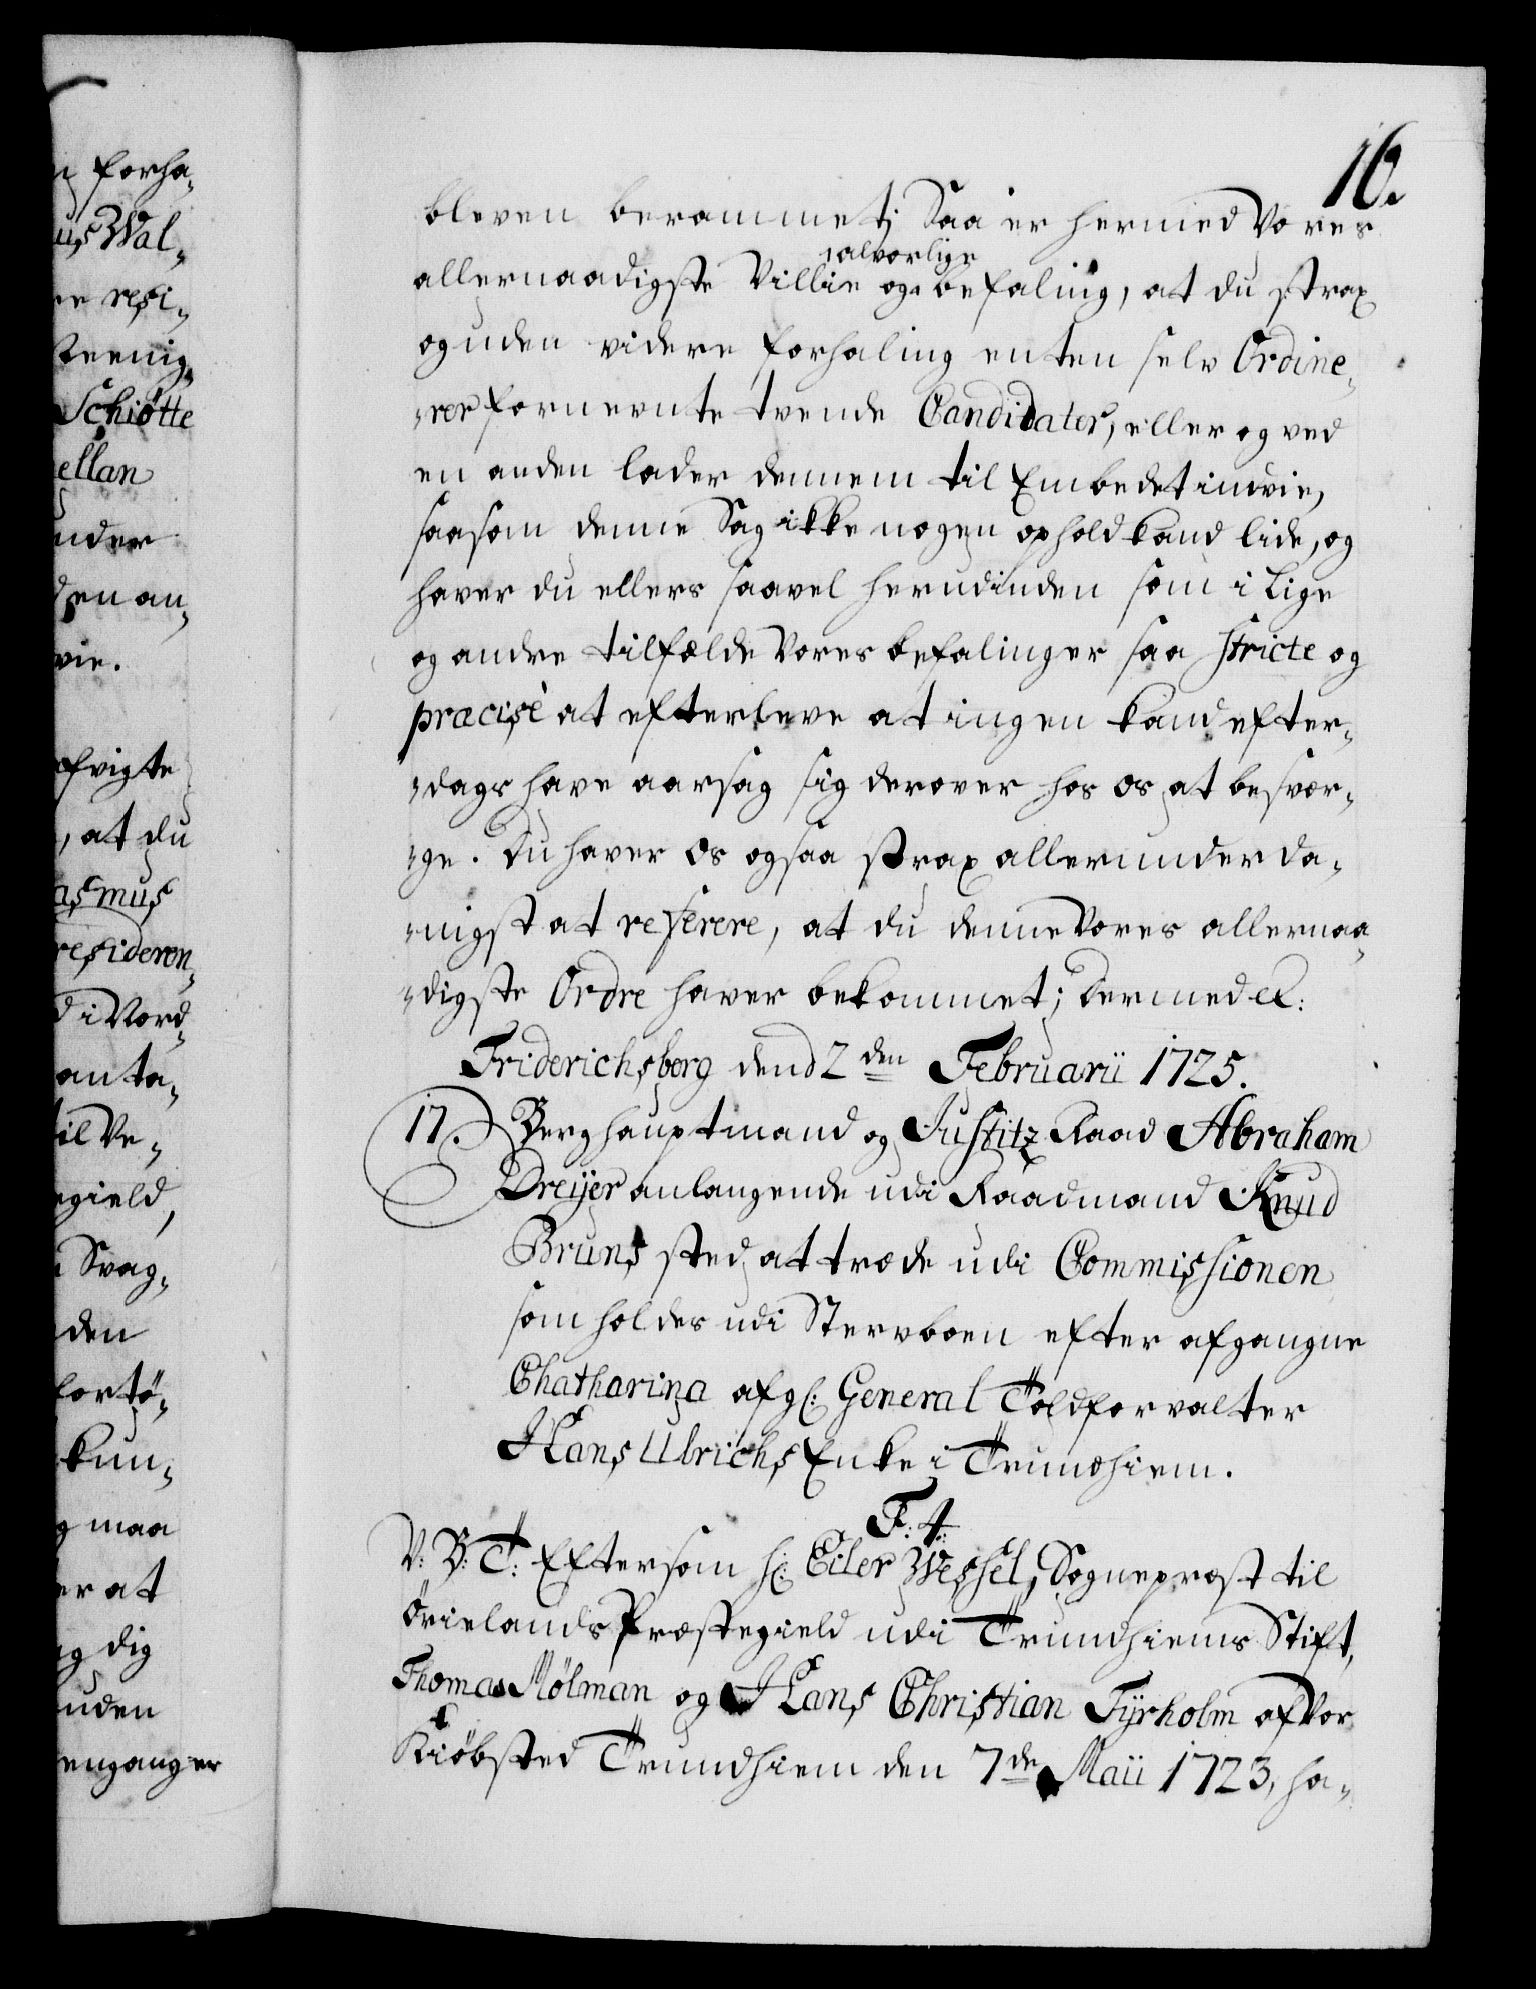 16.
bleven berammet; Saa er hermed Vores
alvorlige
allernaadigste Villie og befaling, at du strax
og uden videre forhaling enten selv Ordine„
„rer fornevnte tvende Candidater, eller og ved
en anden lader dennem til Embedet indvie,
saasom denne Sag ikke nogen ophold kand lide, og
haver du ellers saavel herudinden som i Lige
og andre tilfælde Vores befalinger saa stricte og
præcisè at efterleve at ingen kand efter„
„dags have aarsag sig derover hos os at besvær„
„ge. Du haver os ogsaa strax allerunderda„
„nigst at referere, at du denne Vores allernaa„
„digste Ordre haver bekommet; dermed et:
Friderichsberg dend 2den Februarii 1725.
17. Berghauptmand og Justitz Raad Abraham
Dreijer anlangende udi Raadmand Knud
Bruns sted at træde udi Commissionen
som holdes udi Stervboen efter afgangne
Chatharina afg: General Toldforvalter
Hans Ulrichs Enke i Trundhiem.
F. 4.
V: B: T: Eftersom hr: Eiler Wessel, Sognepræst til
Örielands Præstegield udi Trundhiems Stift,
Thomas Mölman og Hans Christian Fyrholm af Vor
Kiöbsted Trundhiem den 7de Maii 1723, ha„
n forha„
us Wal„
re resi„
steenig„
Schiøtte
ellan
under
den an„
vie.
ofvigte
, at du
asmus
resideren„
d i Nord„
anta„
til Ve„
egield,
Svag„
den
fortö„
kun„
g maa
er at
og dig
uden
enganger